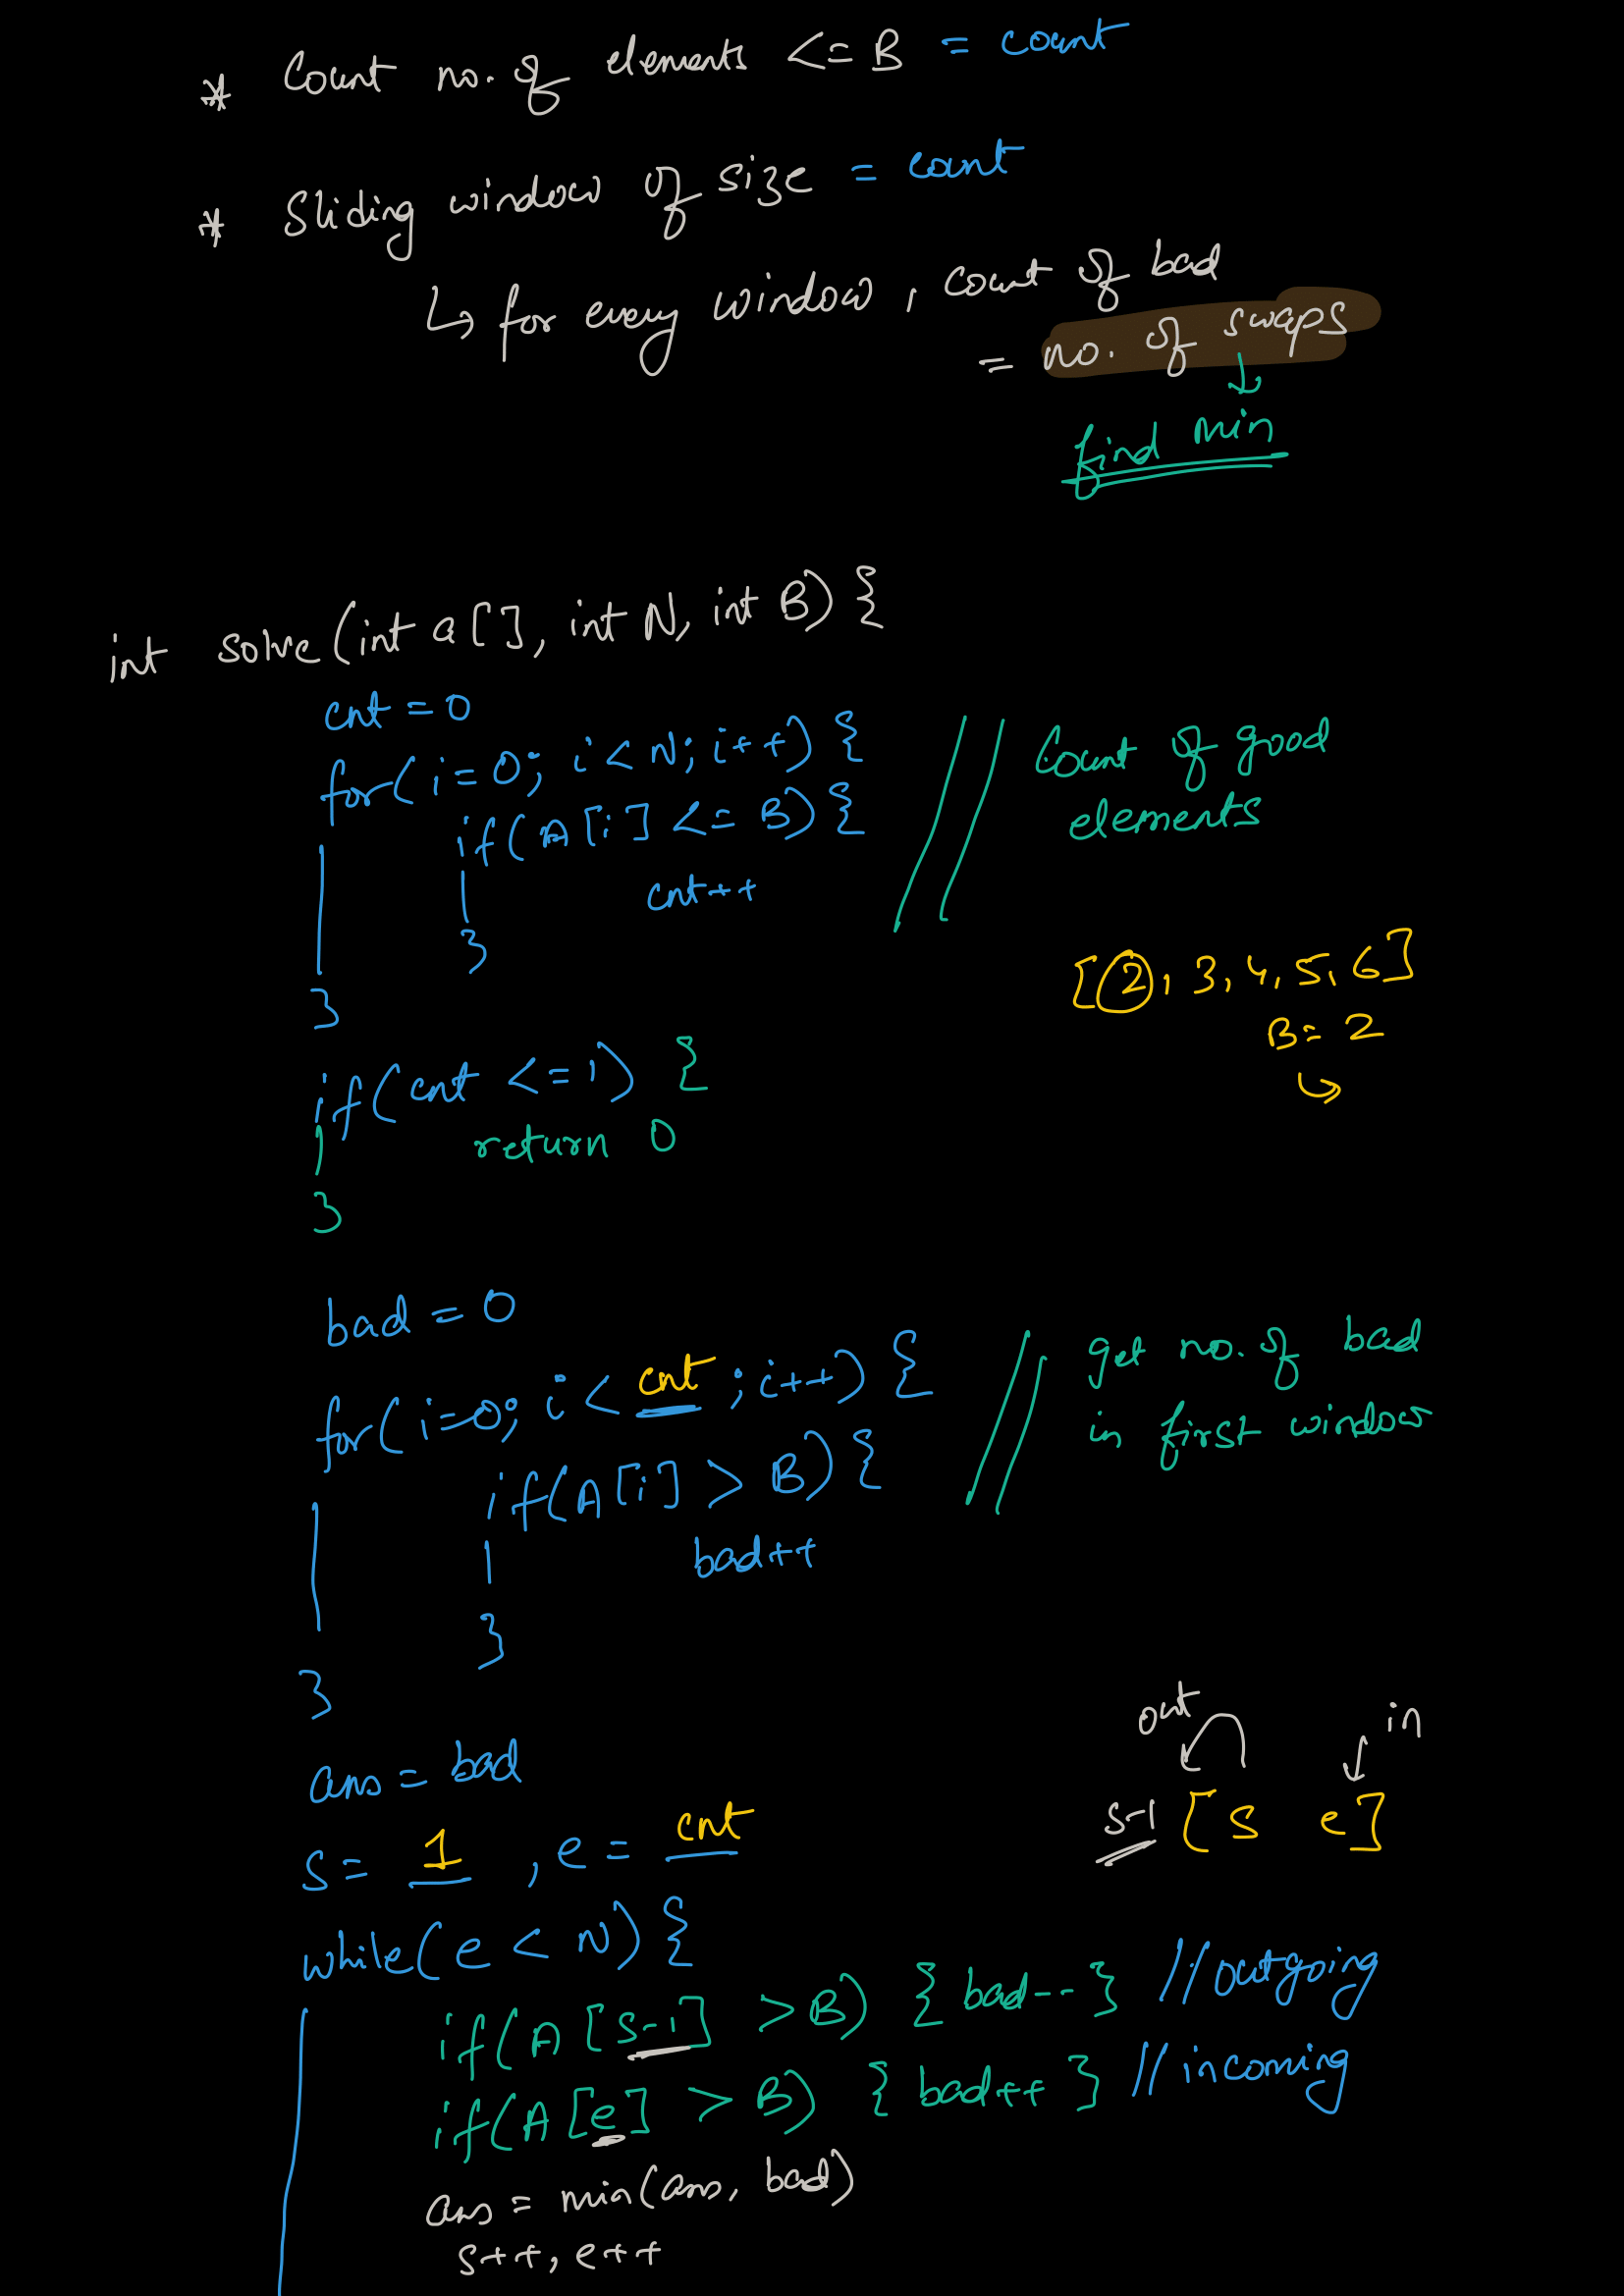 * Count no. of elements <= B = count
* Sliding window of size = count
↳ for every window, count of bad
= no. of swaps
↓
find min
int solve(int a[], int N, int B) {
cnt = 0
for(i=0; i<N; i++) {
if(A[i] <= B) {
cnt++
}
}
// Count of good
elements
[2, 3, 4, 5, 6]
B = 2
↳
if(cnt <= 1) {
return 0
}
bad = 0
for(i=0; i < cnt; i++) {
if(A[i] > B) {
bad++
}
}
// get no. of bad
in first window
ans = bad
s = 1, e = cnt
out in
s-1 [s e]
while(e < N) {
if(A[s-1] > B) { bad-- } // outgoing
if(A[e] > B) { bad++ } // incoming
ans = min(ans, bad)
s++, e++